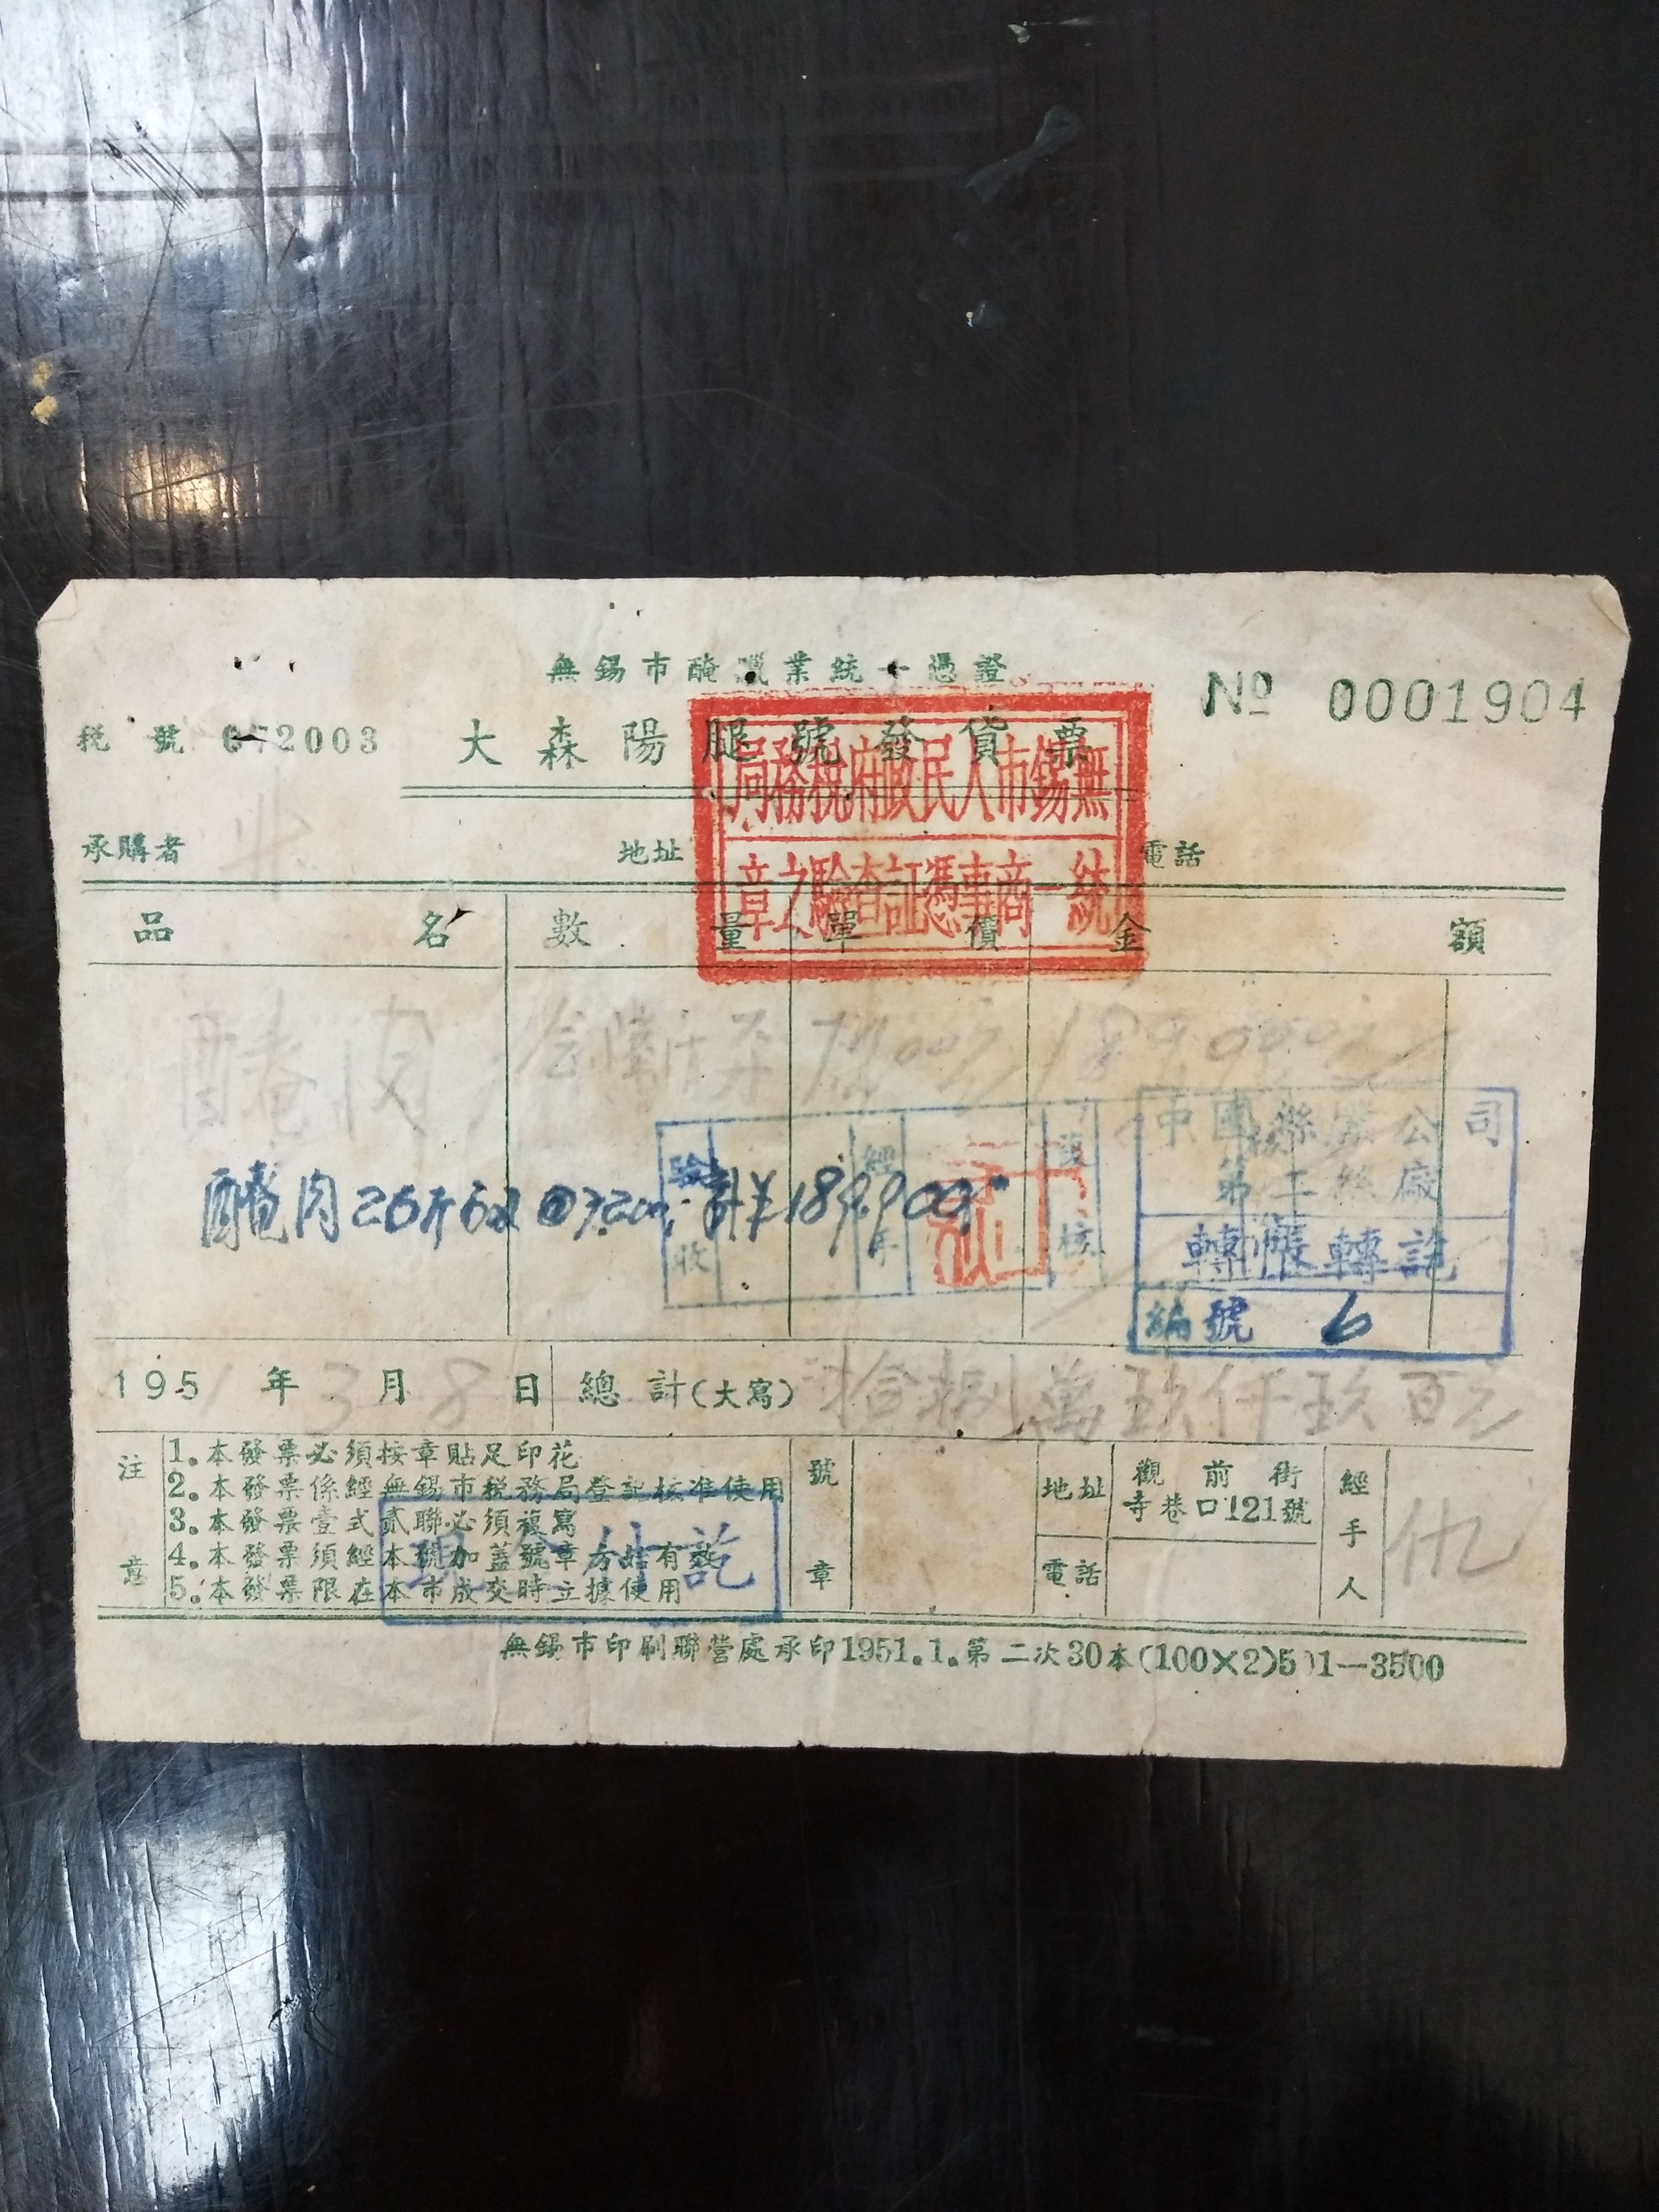 無錫市醃臘業統一憑證
№ 0001904
稅號 672003
大森陽腿號發貨票
無錫市人民政府稅務局
統一商事憑証查驗之章
承購者 地址 電話
品名 數量 單價 金額
醃肉 189900
中國蠶絲公司
第二絲廠
轉帳轉訖
編號 6
驗收 經手 復核
醃肉26斤6两@7200, 計¥189,900
1951年3月8日 總計(大寫) 拾捌萬玖仟玖百元
注意
1.本發票必須按章貼足印花
2.本發票係經無錫市稅務局登記核准使用
3.本發票壹式貳聯必須複寫
4.本發票須經本號加蓋號章方始有效
5.本發票限在本市成交時立據使用
付訖
號章
地址 觀前街寺巷口121號
電話
經手人 仇
無錫市印刷聯營處承印1951.1.第二次30本(100×2)501—3500